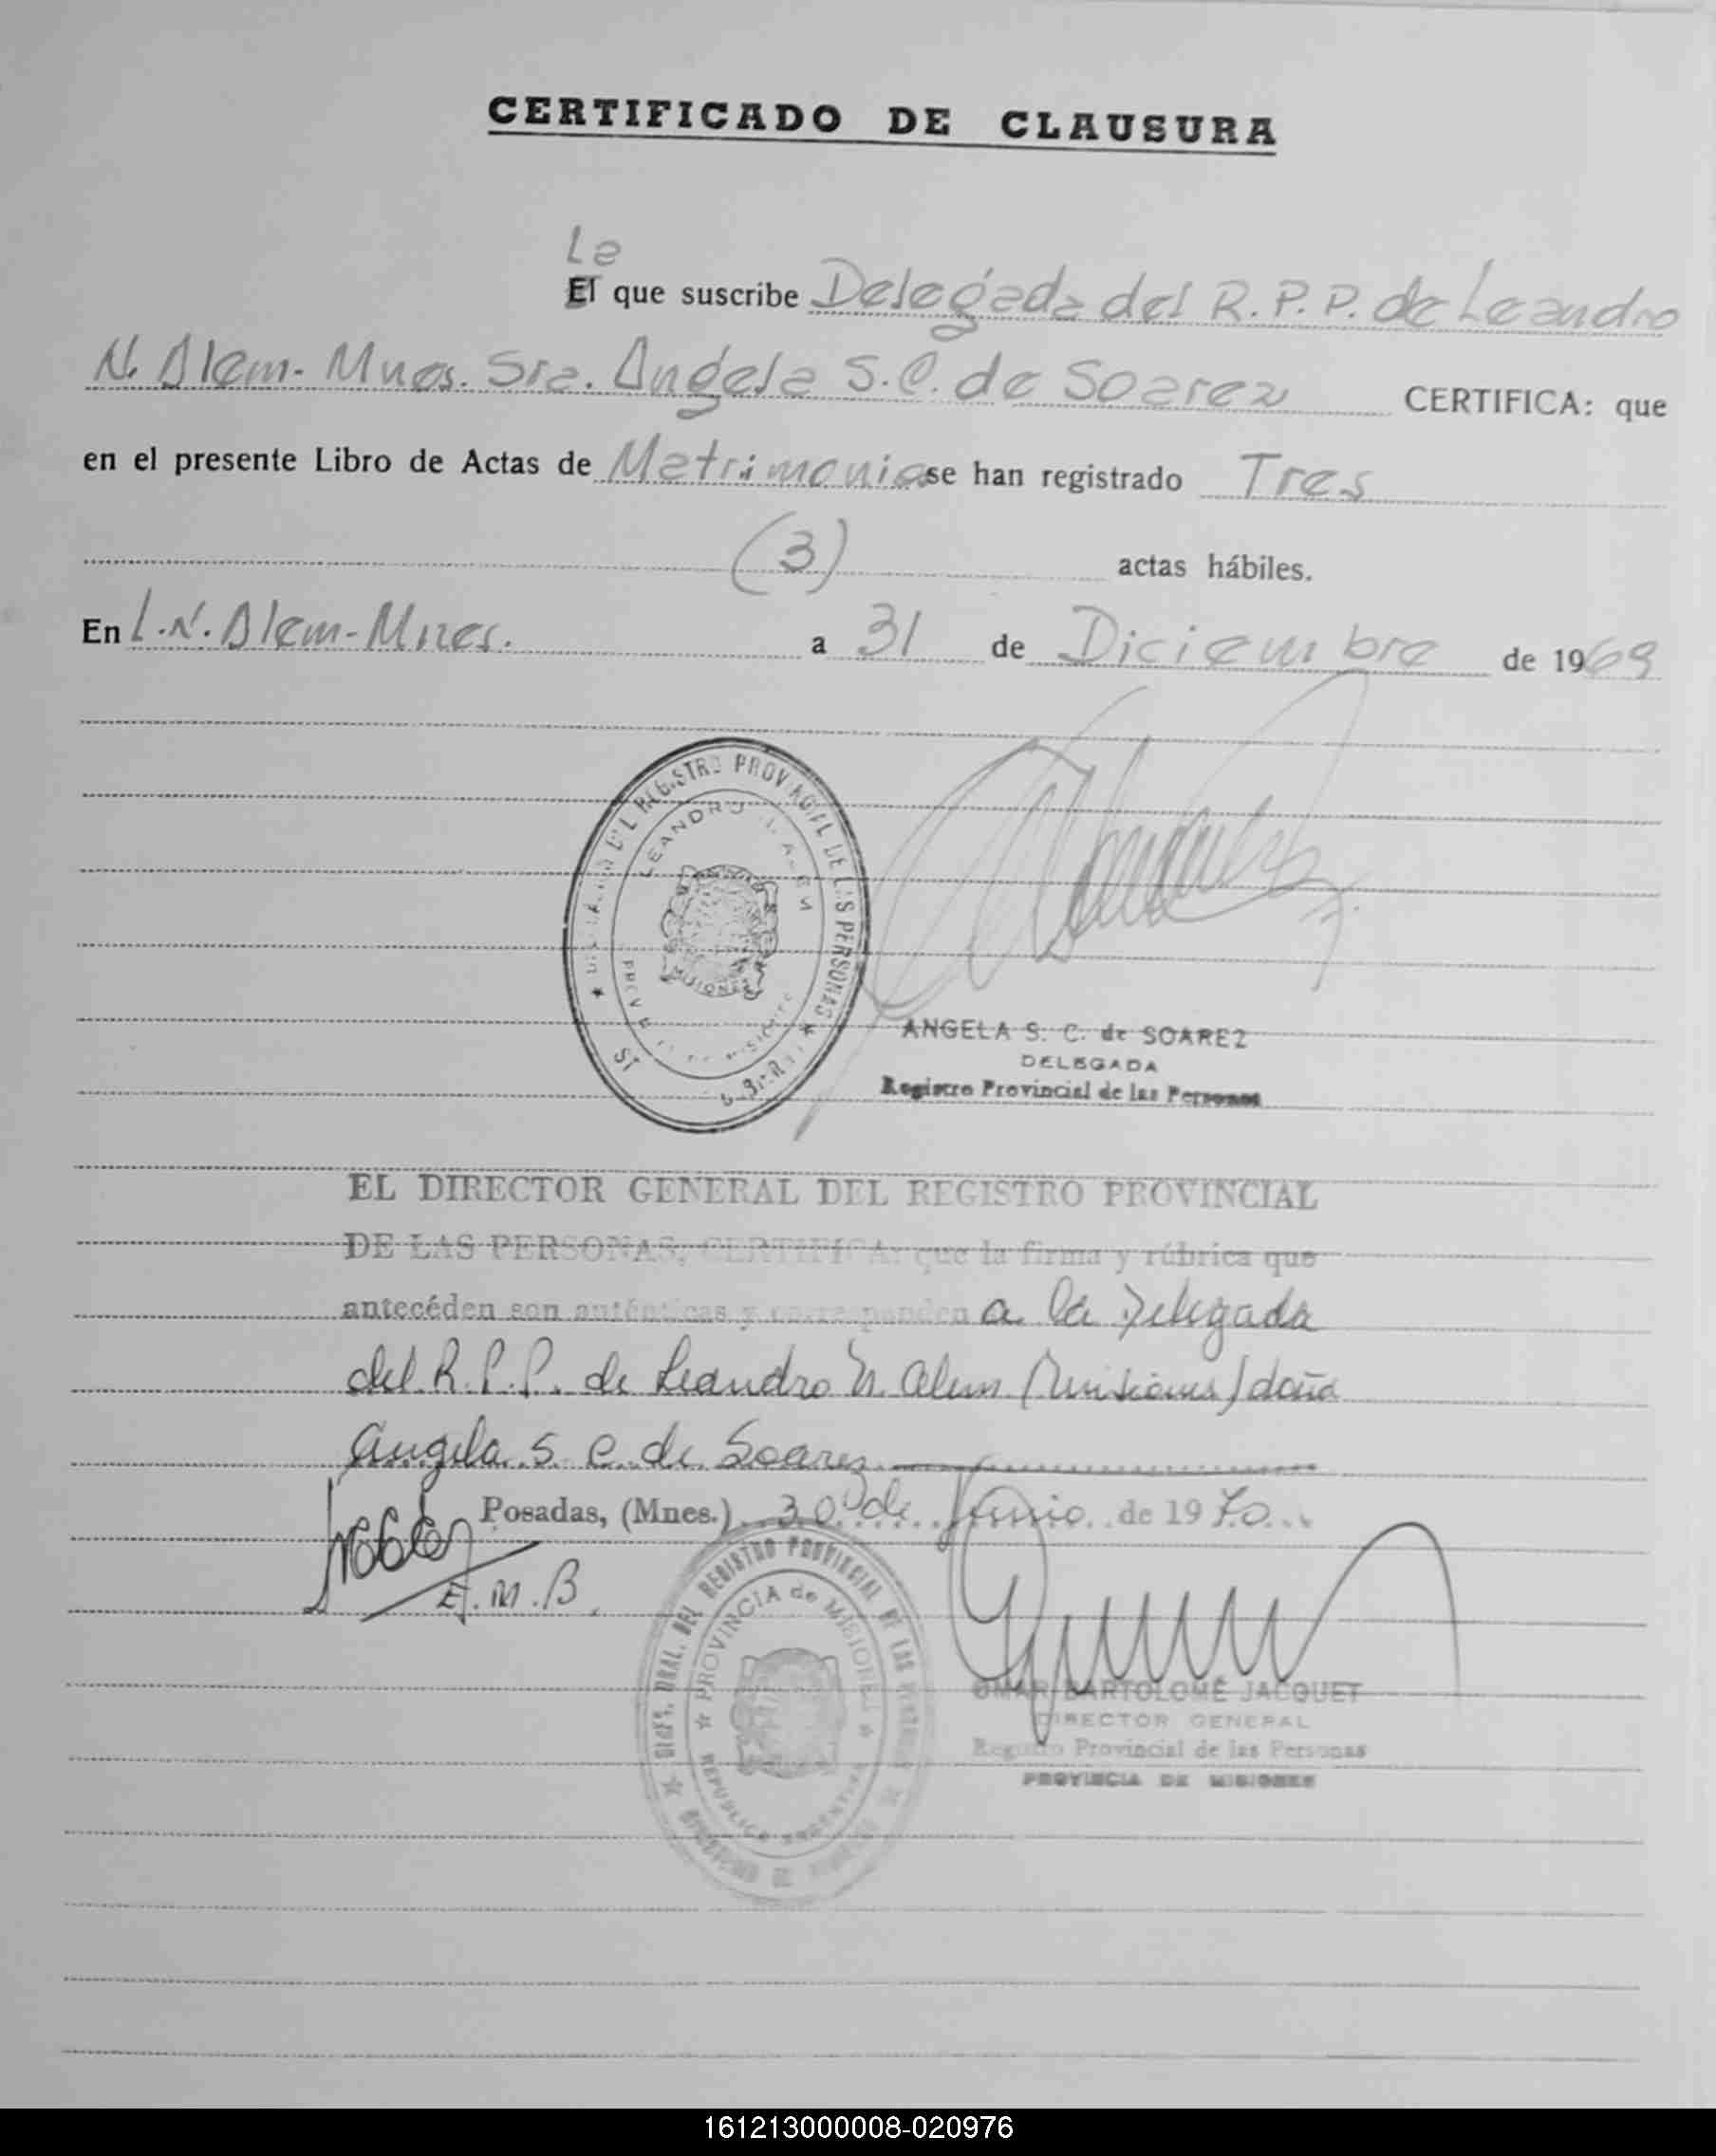 CERTIFICADO DE CLAUSURA
La
El que suscribe Delegada del R.P.P. de Leandro
N. Alem - Mnes. Sra. Angela S.C. de Soarez CERTIFICA: que
en el presente Libro de Actas de Matrimonios se han registrado Tres
(3) actas hábiles.
En L.N. Alem - Mnes. a 31 de Diciembre de 1969
REGISTRO PROVINCIAL DE LAS PERSONAS
LEANDRO N. ALEM
MISIONES
ANGELA S. C. de SOAREZ
DELEGADA
Registro Provincial de las Personas
EL DIRECTOR GENERAL DEL REGISTRO PROVINCIAL
DE LAS PERSONAS, CERTIFICA: que la firma y rúbrica que
antecéden son auténticas y corresponden a la Delegada
del R.P.P. de Leandro N. Alem (Misiones) doña
Angela S. C. de Soarez
Posadas, (Mnes.) 30 de Junio de 1970
E.M.B.
DEL REGISTRO PROVINCIAL DE LAS PERSONAS
PROVINCIA de MISIONES
REPUBLICA ARGENTINA
OMAR BARTOLOMÉ JACQUET
DIRECTOR GENERAL
Registro Provincial de las Personas
PROVINCIA DE MISIONES
161213000008-020976